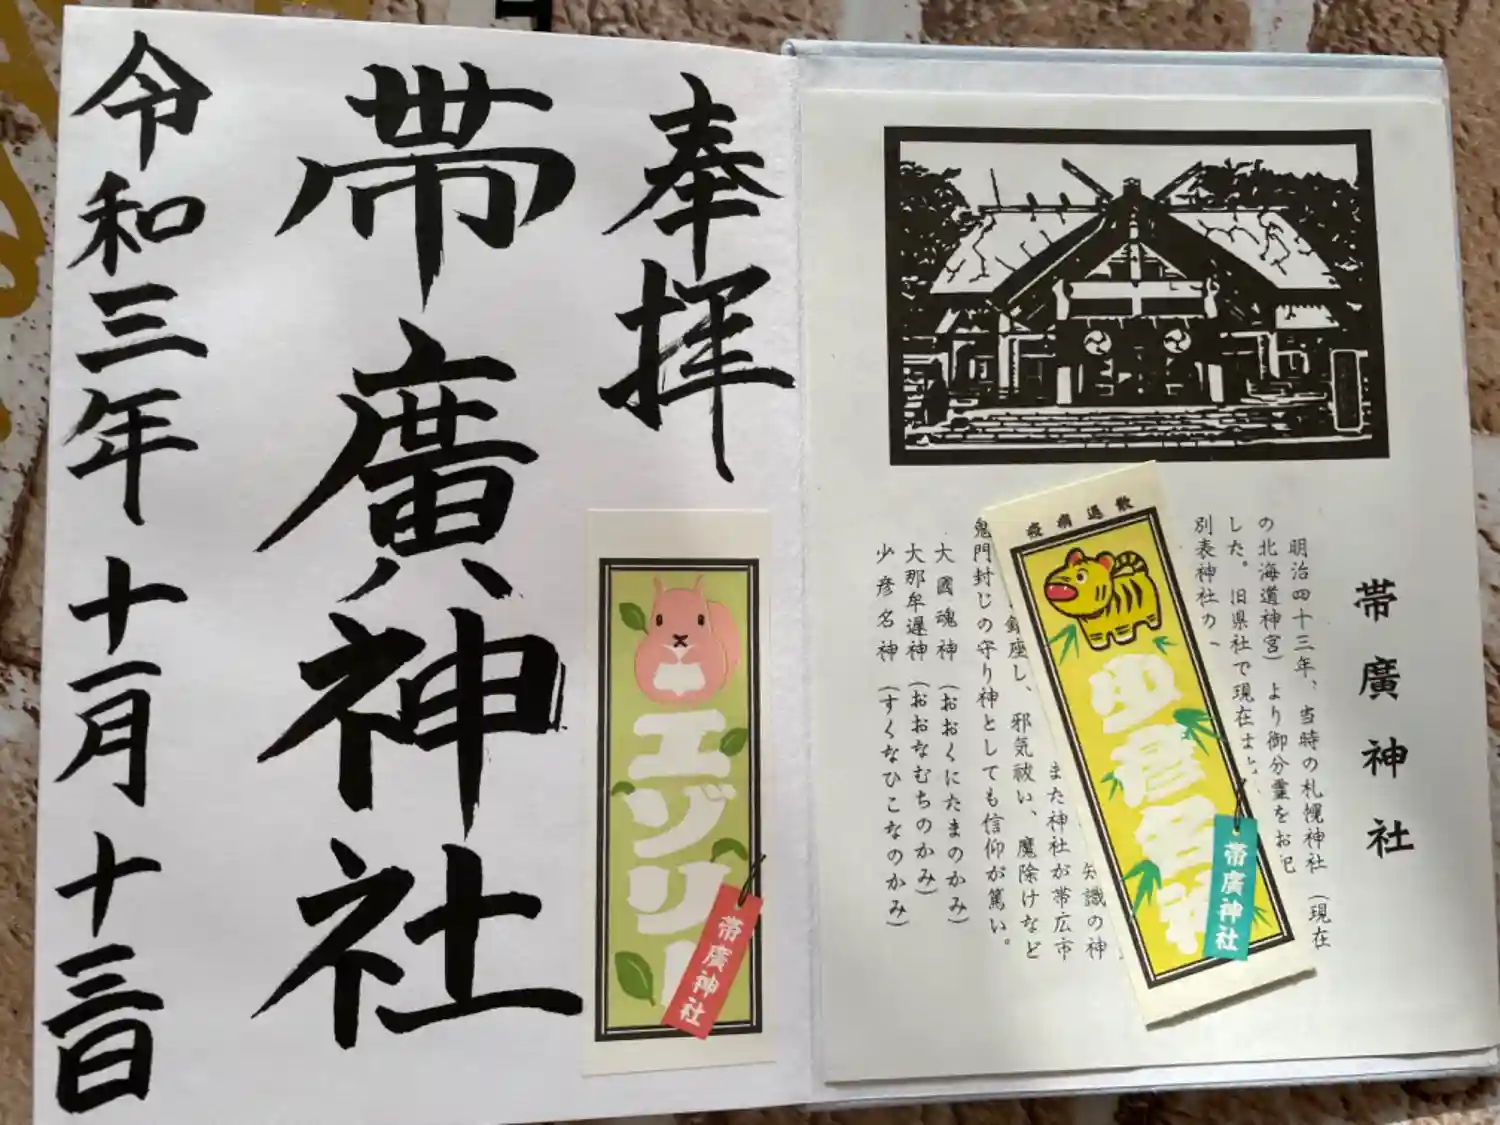 奉拝
帯廣神社
令和三年十一月十三日
エゾリ
帯廣神社
帯廣神社
明治四十三年、当時の札幌神社(現在
の北海道神宮)より御分霊をお祀
した。旧県社で現在は
別表神社の一
知識の神
また神社が帯広市
座し、邪気祓い、魔除けなど
鬼門封じの守り神としても信仰が篤い。
大國魂神(おおくにたまのかみ)
大那牟遅神(おおなむちのかみ)
少彦名神(すくなひこなのかみ)
疫病退散
少彦名神
帯廣神社